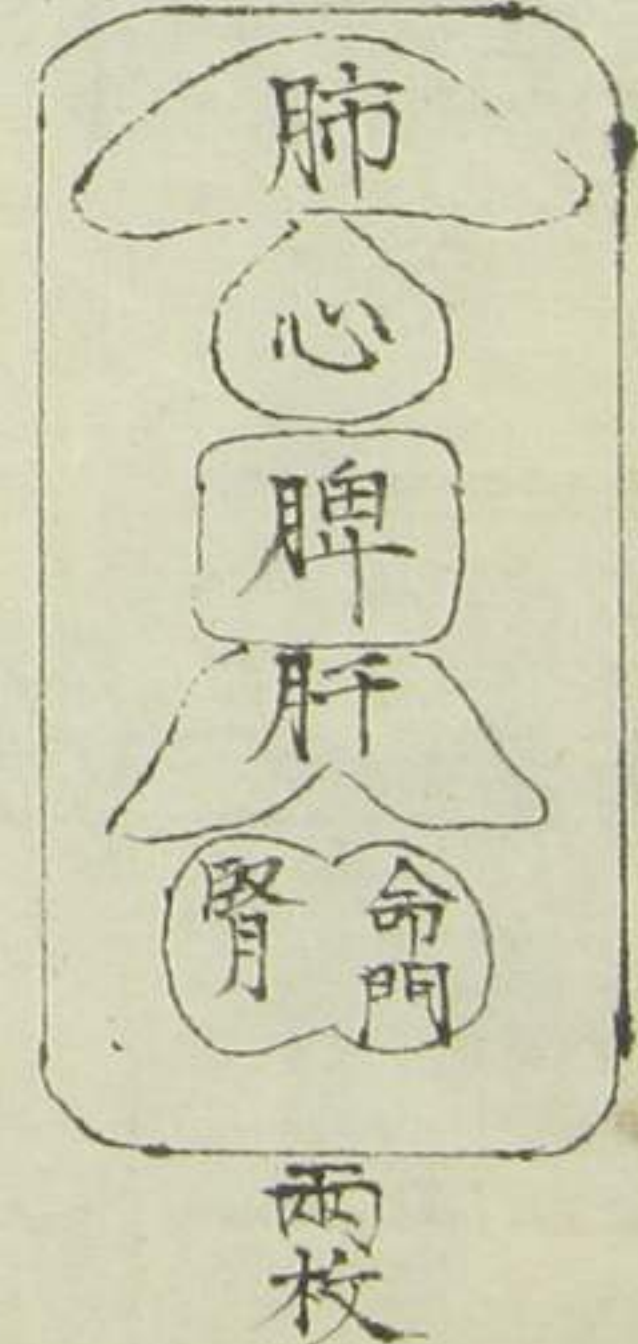 肺
心
脾
肝
腎
命門
兩枚